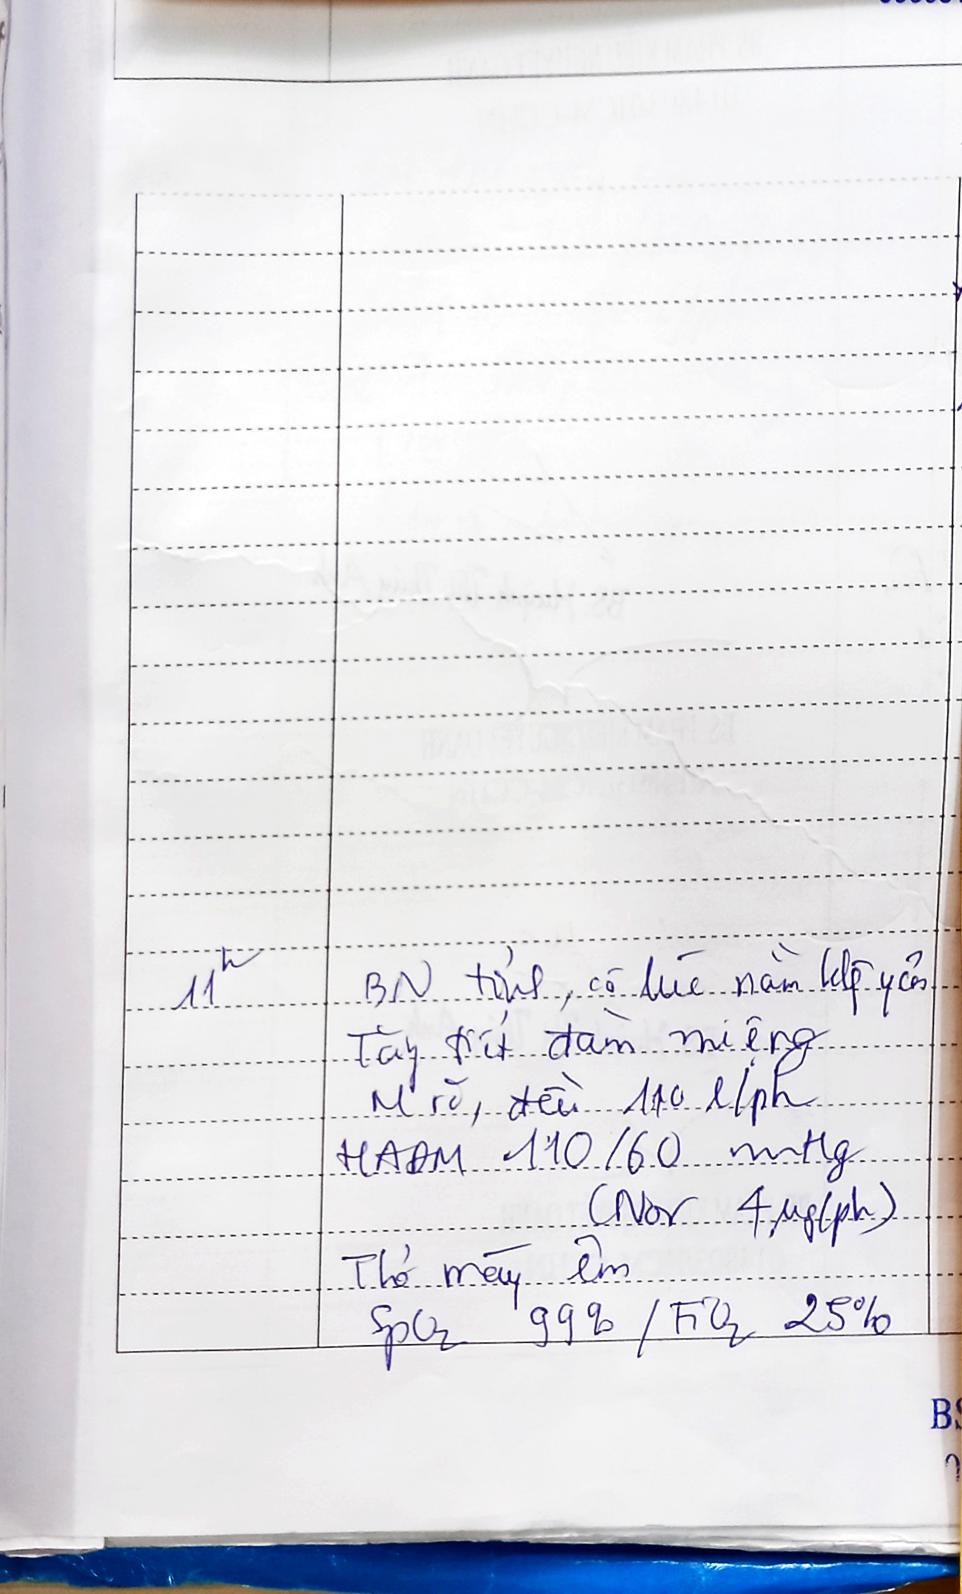 11h BN tỉnh, có lúc nằm kg yên
Tay đít đàm miệng
M rõ, đều 110 l/ph
HAĐM 110/60 mmHg
(Nor 4 µg/ph)
Thở máy êm
SpO2 99% / FiO2 25%
BS